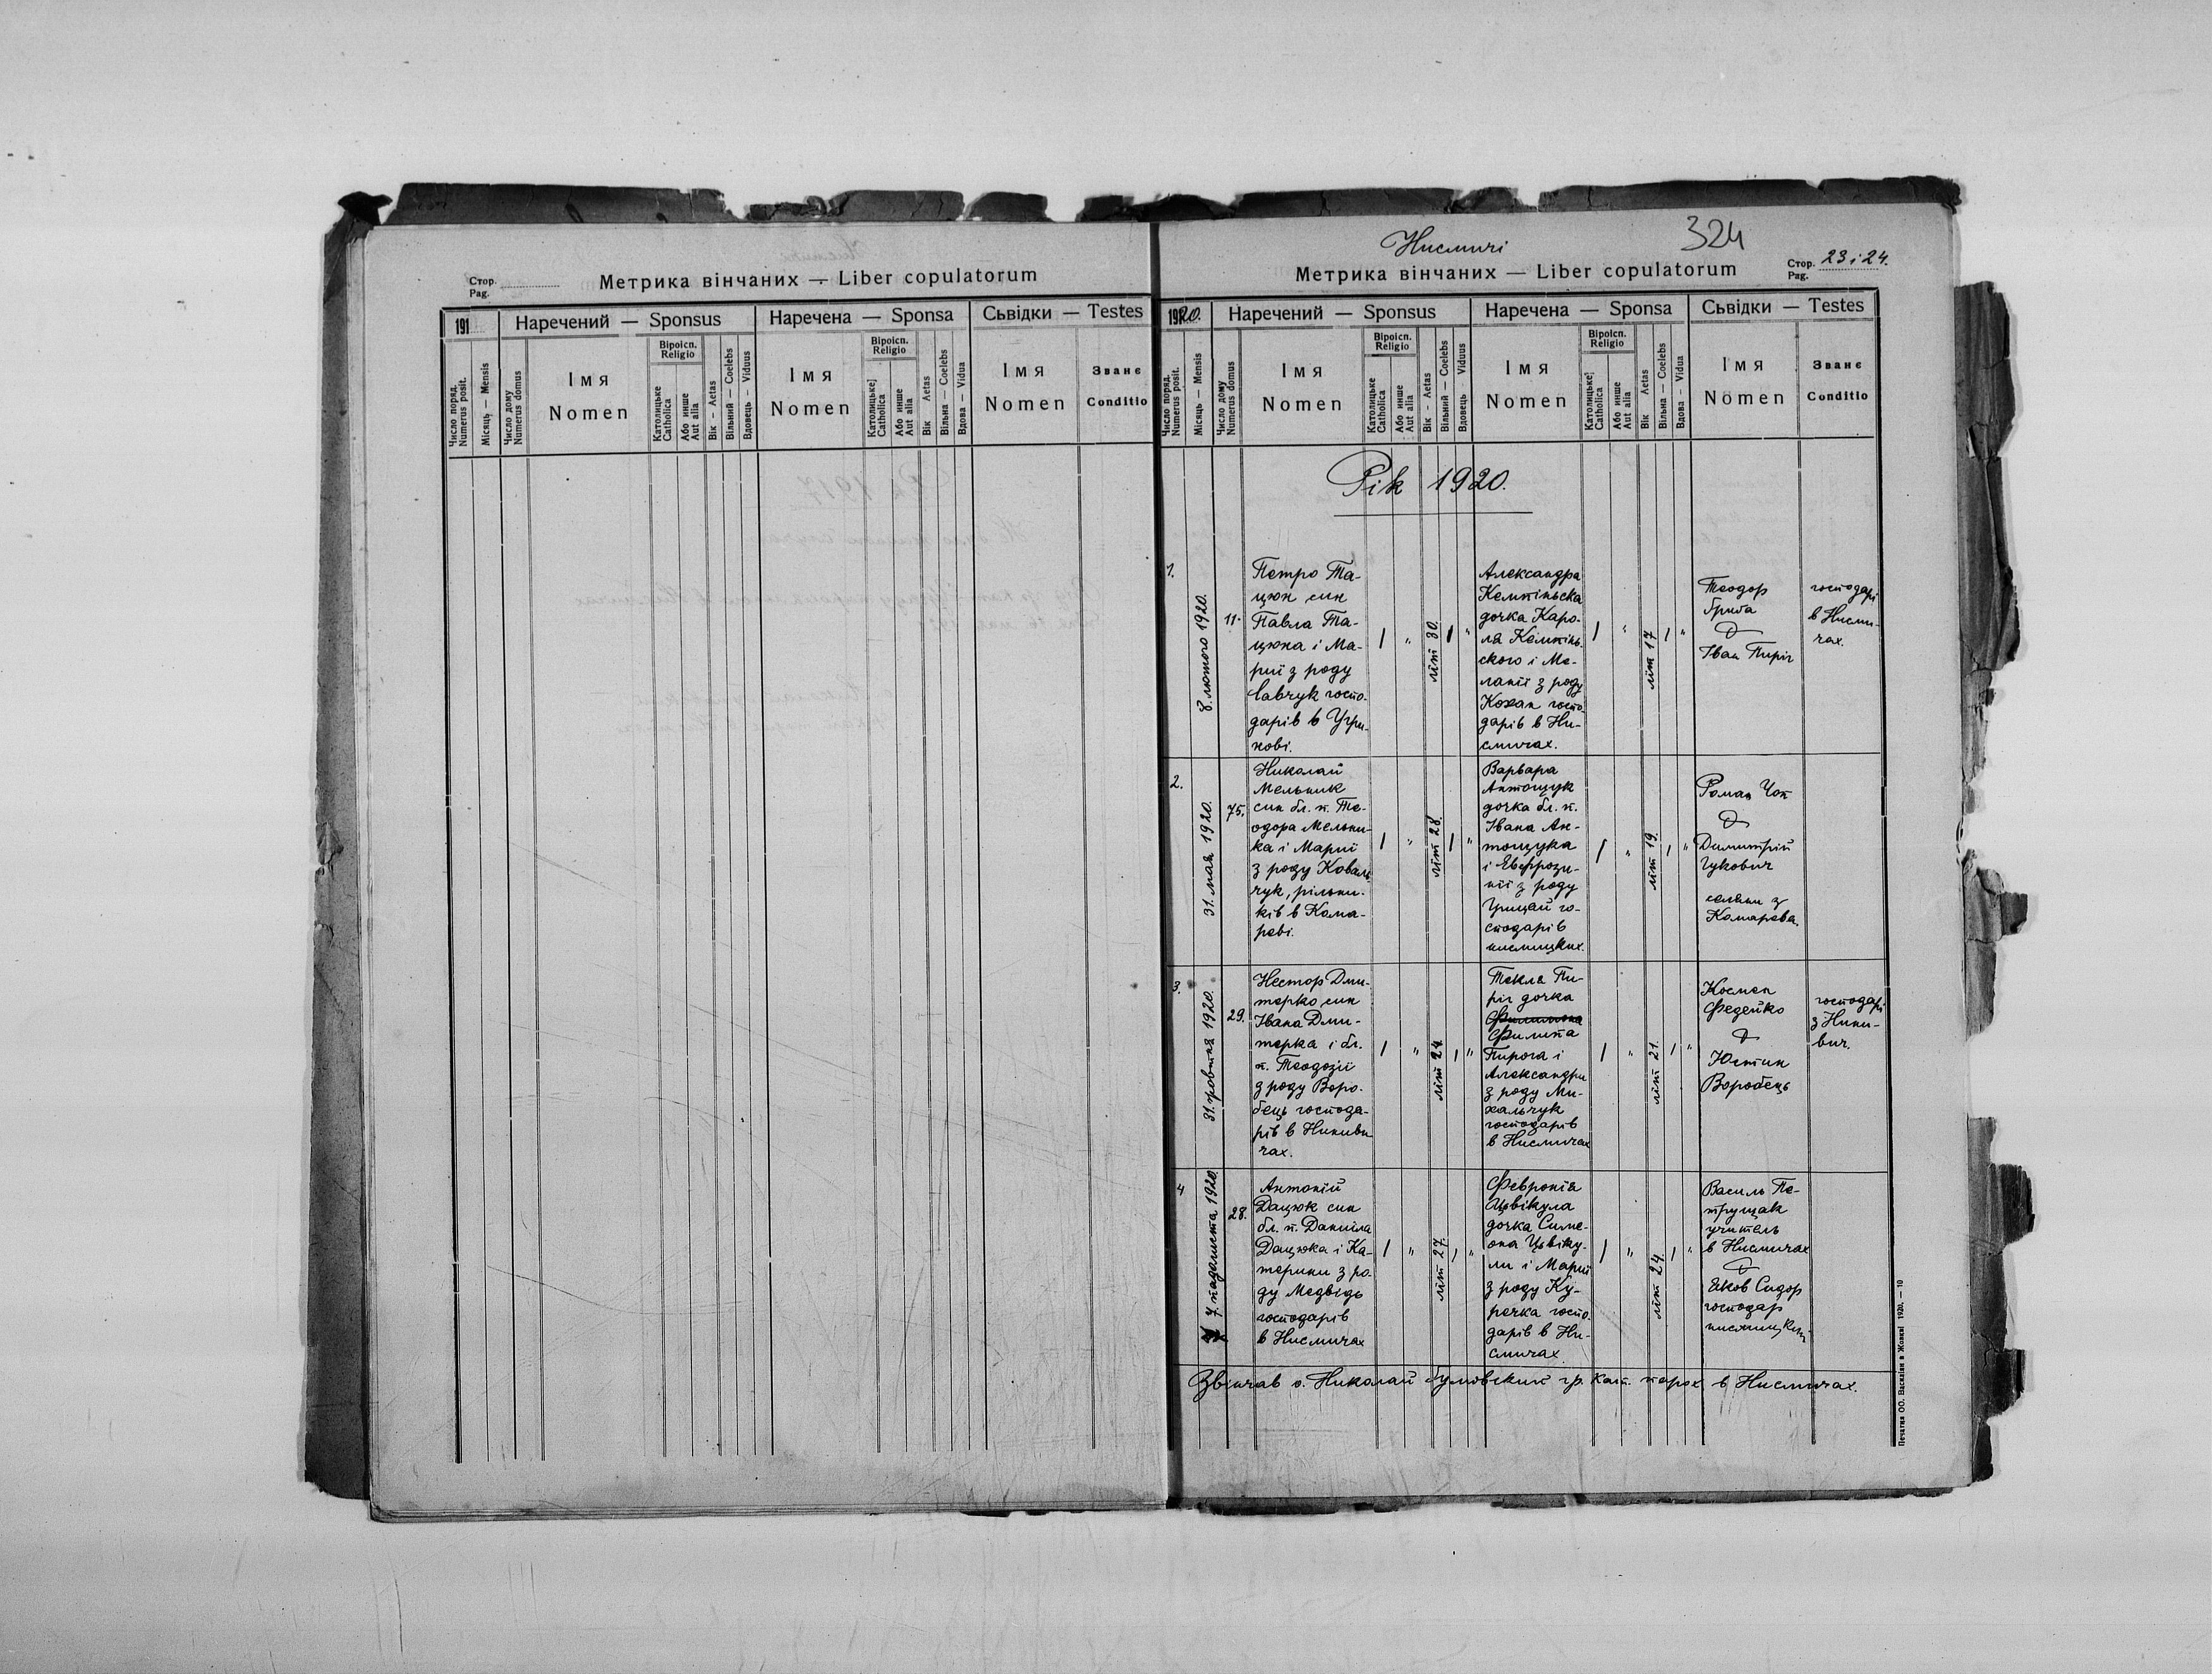 Стор.
Pag.
Метрика вінчаних — Liber copulatorum
191
Наречений — Sponsus
Наречена — Sponsa
Сьвідки — Testes
Число поряд.
Numerus posit.
Місяць — Mensis
Число дому
Numerus domus
Імя
Nomen
Віроісп.
Religio
Католицьке
Catholica
Або инше
Aut alia
Вік - Aetas
Вільний — Coelebs
Вдовець - Viduus
Імя
Nomen
Віроісп.
Religio
Католицьке
Catholica
Або инше
Aut alia
Вік Aetas
Вільна — Coelebs
Вдова — Vidua
Імя
Nomen
Званє
Conditio
Нисмичі
324
Метрика вінчаних — Liber copulatorum
Стор. 23 і 24.
Pag.
1920.
Наречений — Sponsus
Наречена — Sponsa
Сьвідки — Testes
Число поряд.
Numerus posit.
Місяць — Mensis
Число дому
Numerus domus
Імя
Nomen
Віроісп.
Religio
Католицьке
Catholica
Або инше
Aut alia
Вік - Aetas
Вільний — Coelebs
Вдовець Viduus
Імя
Nomen
Віроісп.
Religio
Католицьке
Catholica
Або инше
Aut alia
Вік Aetas
Вільна — Coelebs
Вдова - Vidua
Імя
Nomen
Званє
Conditio
Рік 1920.
1.
8. лютого 1920.
11.
Петро Та-
цюк син
Павла Та-
цюка і Ма-
риї з роду
Савчук госпо-
дарів в Угри-
нові.
літ 30.
Александра
Кемпіньска
дочка Каро-
ля Кемпінь-
ского і Ме-
ланії з роду
Кохан госпо-
дарів в Ни-
смичах.
літ 17
Теодор
Гриба
Іван Пиріг
господарі
в Нисми-
чах.
2.
31. мая 1920.
75.
Николай
Мельник
син бл. п. Те-
одора Мельни-
ка і Марії
з роду Коваль-
чук, рільни-
ків в Кома-
рові.
літ 28.
Варвара
Антощук
дочка бл. п.
Івана Ан-
тощука
і Евфрози-
нії з роду
Грицай го-
сподарів
нисмицких.
літ 19.
Роман Чоп
Димитрій
Гукович
селяни з
Комарова.
3.
31. жовтня 1920.
29.
Нестор Дми-
терко син
Івана Дми-
терка і бл.
п. Теодозії
з роду Воро-
бець господа-
рів в Ниниви-
чах.
літ 24.
Текля Пи-
ріг дочка
Филипа
Пирога і
Александри
з роду Ми-
хальчук
господарів
в Нисмичах
літ 21.
Космен
Федейко
Юстин
Воробець
господарі
з Нини-
вич.
4
7 падолиста 1920.
28.
Антоній
Дацюк син
бл. п. Даниіла
Дацюка і Ка-
терини з ро-
ду Медвідь
господарів
в Нисмичах
літ 27.
Февронія
Цьвікула
дочка Симе-
она Цьвіку-
ли і Марії
з роду Ку-
речка госпо-
дарів в Ни-
смичах.
літ 24.
Василь Пе-
трущак
учитель
в Нисмичах
Яков Сидор
господар
нисмицкий
Звінчав о. Николай гр. кат. парох в Нисмичах.
Печатня ОО. Василіян в Жовкві 1920. — 10